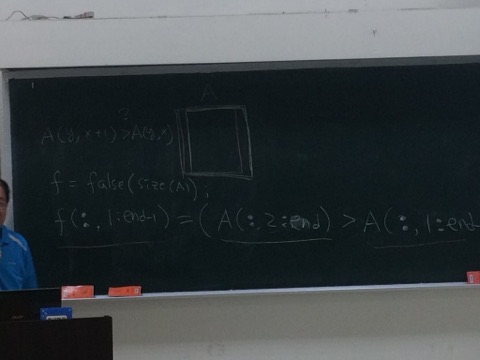 A
?
A(y,x+1)>A(y,x)
f = false(size(A));
f(:, 1:end-1) = (A(:, 2:end) > A(:, 1:end-